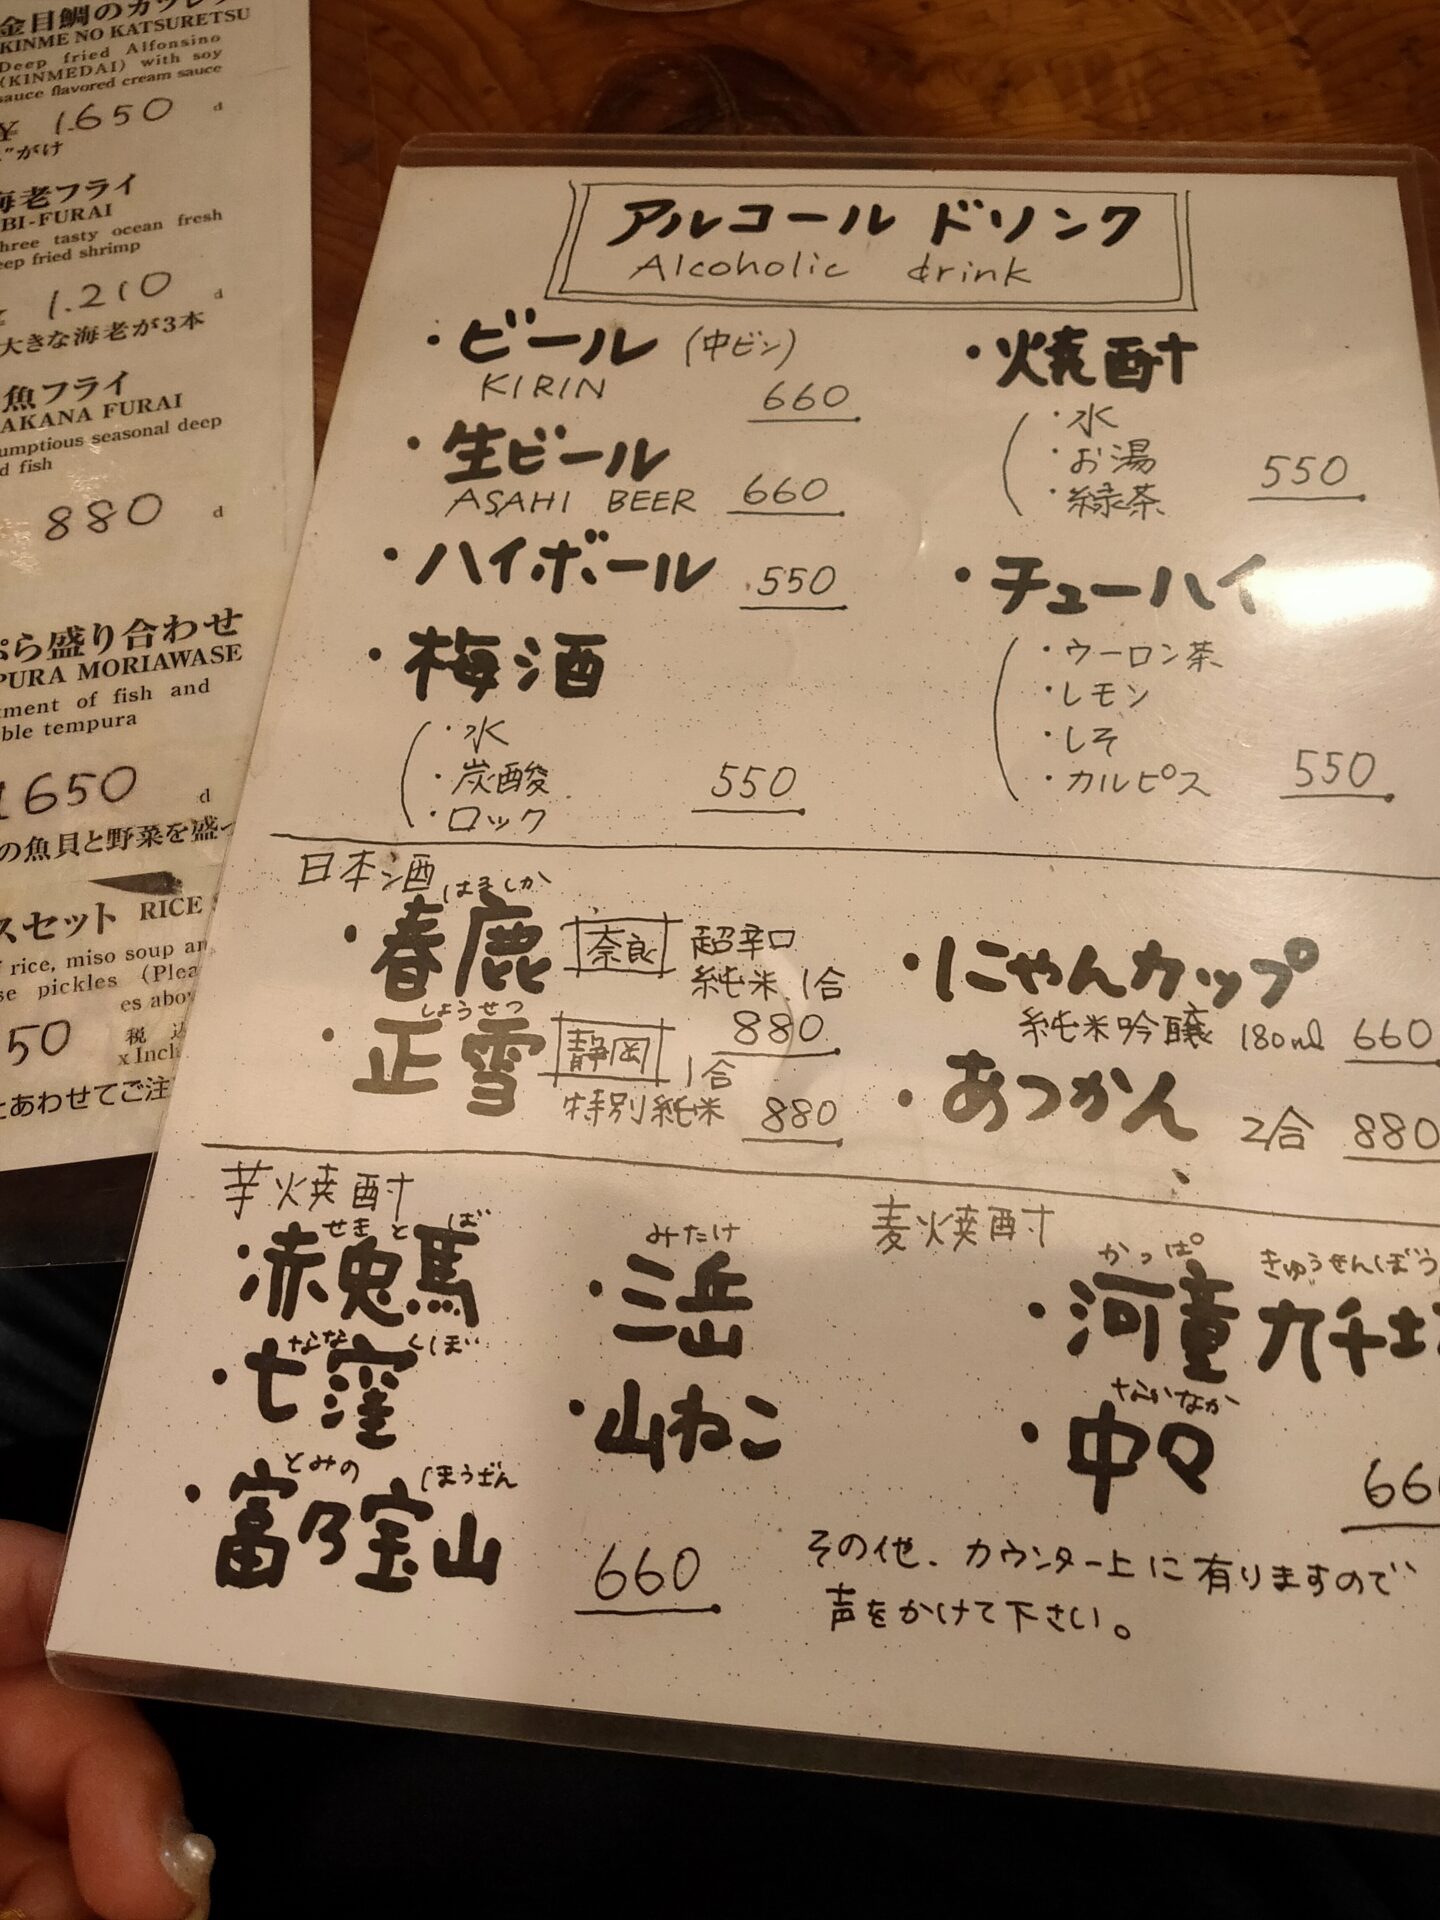 金目鯛のカツレツ
KINME NO KATSURETSU
Deep fried Alfonsino
(KINMEDAI) with soy
sauce flavored cream sauce
¥ 1.650 d
"がけ
海老フライ
BI-FURAI
three tasty ocean fresh
eep fried shrimp
1.210 d
大きな海老が3本
魚フライ
AKANA FURAI
umptious seasonal deep
d fish
880 d
ぷら盛り合わせ
PURA MORIAWASE
tment of fish and
ble tempura
1650 d
の魚貝と野菜を盛っ
スセット RICE
rice, miso soup an
se pickles (Plea
es abov
50 税込
x Incl
とあわせてご注
アルコール ドリンク
Alcoholic drink
・ビール (中ビン)
KIRIN 660
・生ビール
ASAHI BEER 660
・ハイボール 550
・梅酒
・水
・炭酸
・ロック
550
・焼酎
・水
・お湯
・緑茶
550
・チューハイ
・ウーロン茶
・レモン
・しそ
・カルピス
550
日本酒
はるしか
・春鹿 奈良 超辛口
純米 1合
880
しょうせつ
・正雪 静岡 1合
特別純米 880
・にゃんカップ
純米吟醸 180ml 660
・あつかん 2合 880
芋焼酎
せきとば
・赤兎馬
ななくぼ
・七窪
とみのほうざん
・富乃宝山
みたけ
・三岳
・山ねこ
660
麦焼酎
かっぱ きゅうせんぼう
・河童九千坊
なかなか
・中々
660
その他、カウンター上に有りますので
声をかけて下さい。